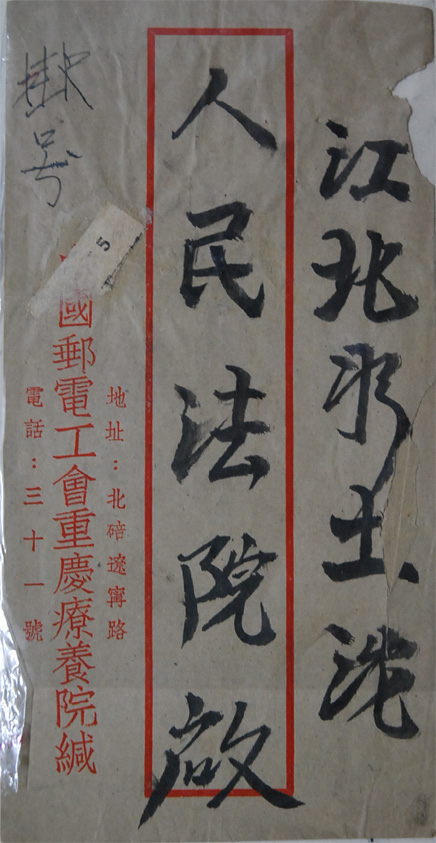 江北水土沱
人民法院啟
地址：北碚遼寧路
國郵電工會重慶療養院緘
電話：三十一號
掛号
5